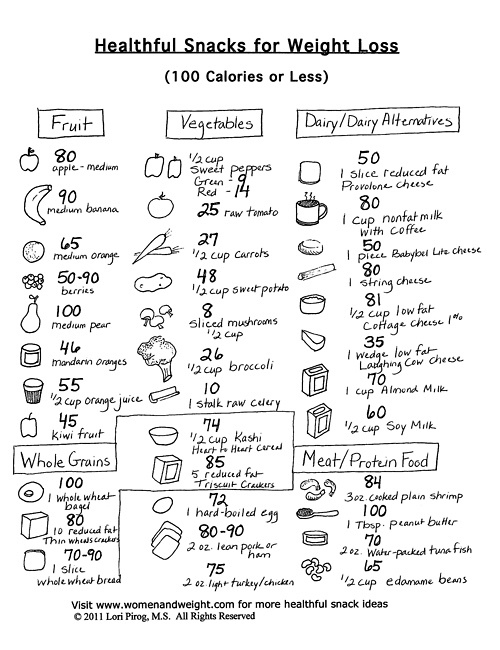 Healthful Snacks for Weight Loss
(100 Calories or Less)
Fruit
80
apple - medium
90
medium banana
65
medium orange
50-90
berries
100
medium pear
46
mandarin oranges
55
1/2 cup orange juice
45
Kiwi fruit
Vegetables
1/2 cup
Sweet peppers
Green - 9
Red - 14
25 raw tomato
27
1/2 cup carrots
48
1/2 cup sweet potato
8
sliced mushrooms
1/2 cup
26
1/2 cup broccoli
10
1 stalk raw celery
Dairy/Dairy Alternatives
50
1 slice reduced fat
Provolone cheese
80
1 cup nonfat milk
with coffee
50
1 piece Babybel Lite cheese
80
1 string cheese
81
1/2 cup low fat
Cottage cheese 1%
35
1 wedge low fat
Laughing Cow cheese
70
1 cup Almond Milk
60
1/2 cup Soy Milk
Whole Grains
100
1 whole wheat
bagel
80
10 reduced fat
Thin wheats crackers
70-90
1 slice
whole wheat bread
74
1/2 cup Kashi
Heart to Heart Cereal
85
5 reduced fat
Triscuit Crackers
Meat/Protein Food
72
1 hard-boiled egg
80-90
2 oz. lean pork or
ham
75
2 oz. light turkey/chicken
84
3oz. cooked plain shrimp
100
1 Tbsp. peanut butter
70
2 oz. Water-packed tuna fish
65
1/2 cup edamame beans
Visit www.womenandweight.com for more healthful snack ideas
© 2011 Lori Pirog, M.S. All Rights Reserved